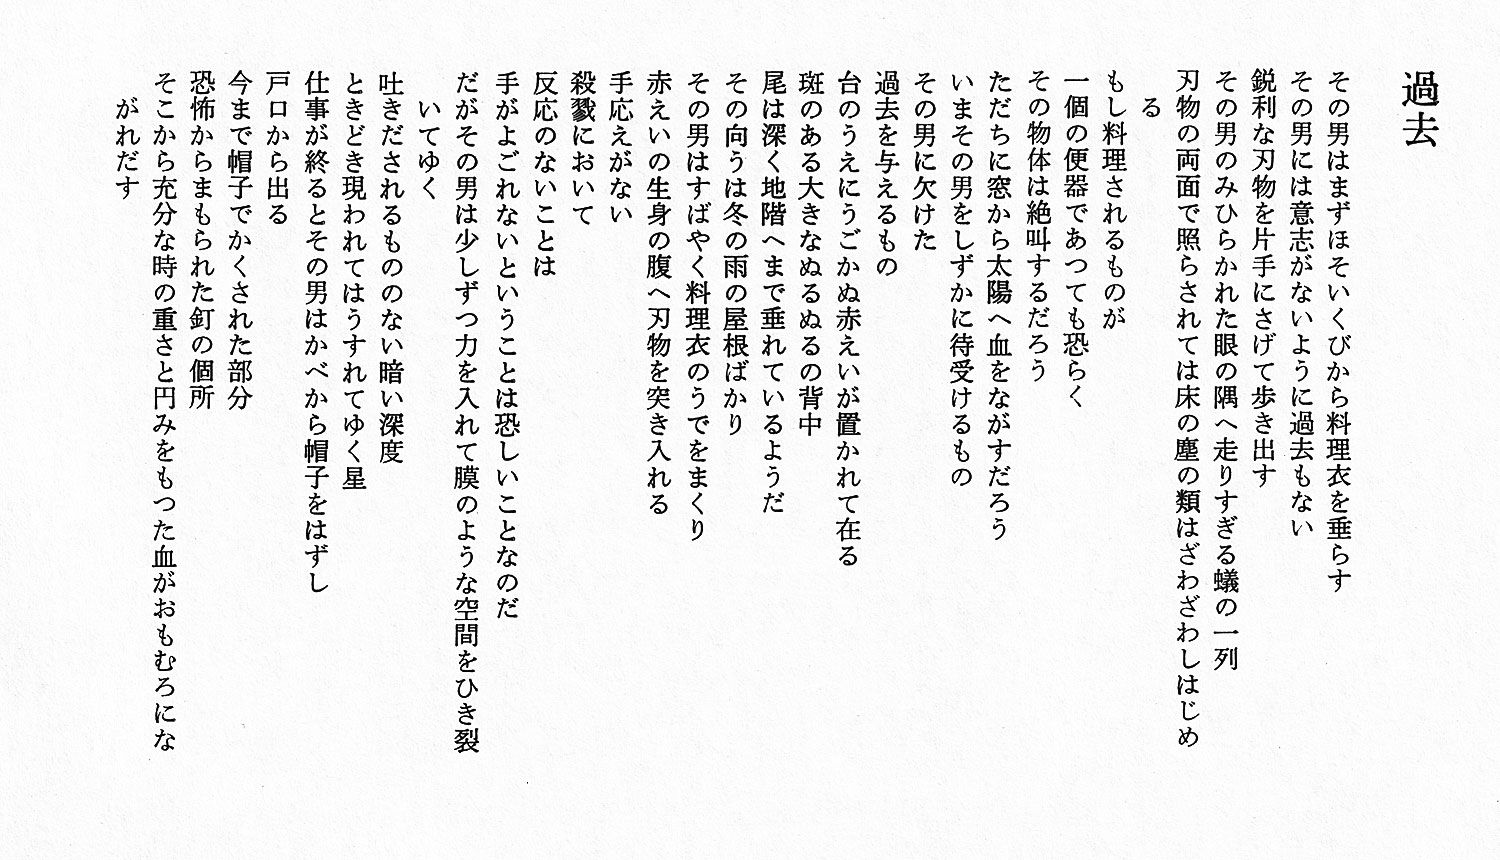 過去
その男はまずほそいくびから料理衣を垂らす
その男には意志がないように過去もない
鋭利な刃物を片手にさげて歩き出す
その男のみひらかれた眼の隅へ走りすぎる蟻の一列
刃物の両面で照らされては床の塵の類はざわざわしはじめ
る
もし料理されるものが
一個の便器であつても恐らく
その物体は絶叫するだろう
ただちに窓から太陽へ血をながすだろう
いまその男をしずかに待受けるもの
その男に欠けた
過去を与えるもの
台のうえにうごかぬ赤えいが置かれて在る
斑のある大きなぬるぬるの背中
尾は深く地階へまで垂れているようだ
その向うは冬の雨の屋根ばかり
その男はすばやく料理衣のうでをまくり
赤えいの生身の腹へ刃物を突き入れる
手応えがない
殺戮において
反応のないことは
手がよごれないということは恐しいことなのだ
だがその男は少しずつ力を入れて膜のような空間をひき裂
いてゆく
吐きだされるもののない暗い深度
ときどき現われてはうすれてゆく星
仕事が終るとその男はかべから帽子をはずし
戸口から出る
今まで帽子でかくされた部分
恐怖からまもられた釘の個所
そこから充分な時の重さと円みをもつた血がおもむろにな
がれだす